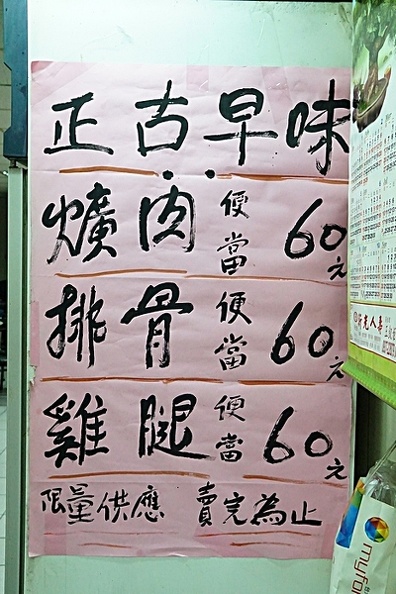 正古早味
爌肉便當60元
排骨便當60元
雞腿便當60元
限量供應 賣完為止
myfon